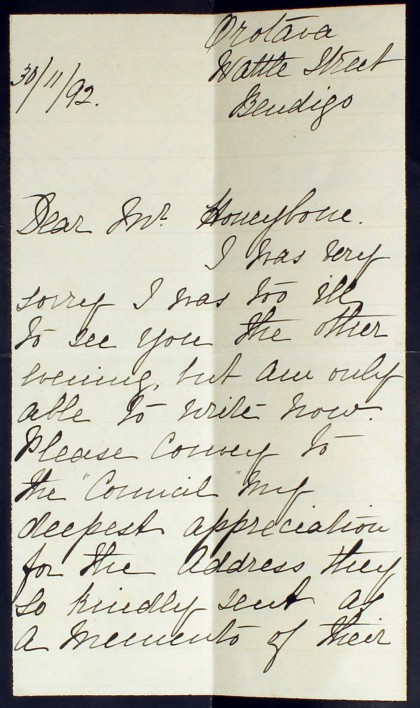 Orotava
Wattle Street
Bendigo
30/11/92.
Dear Mr. Honeybone.
I was very
sorry I was too ill
to see you the other
evening, but am only
able to write now.
Please convey to
the "Council" my
deepest appreciation
for the Address they
so kindly sent as
a memento of their